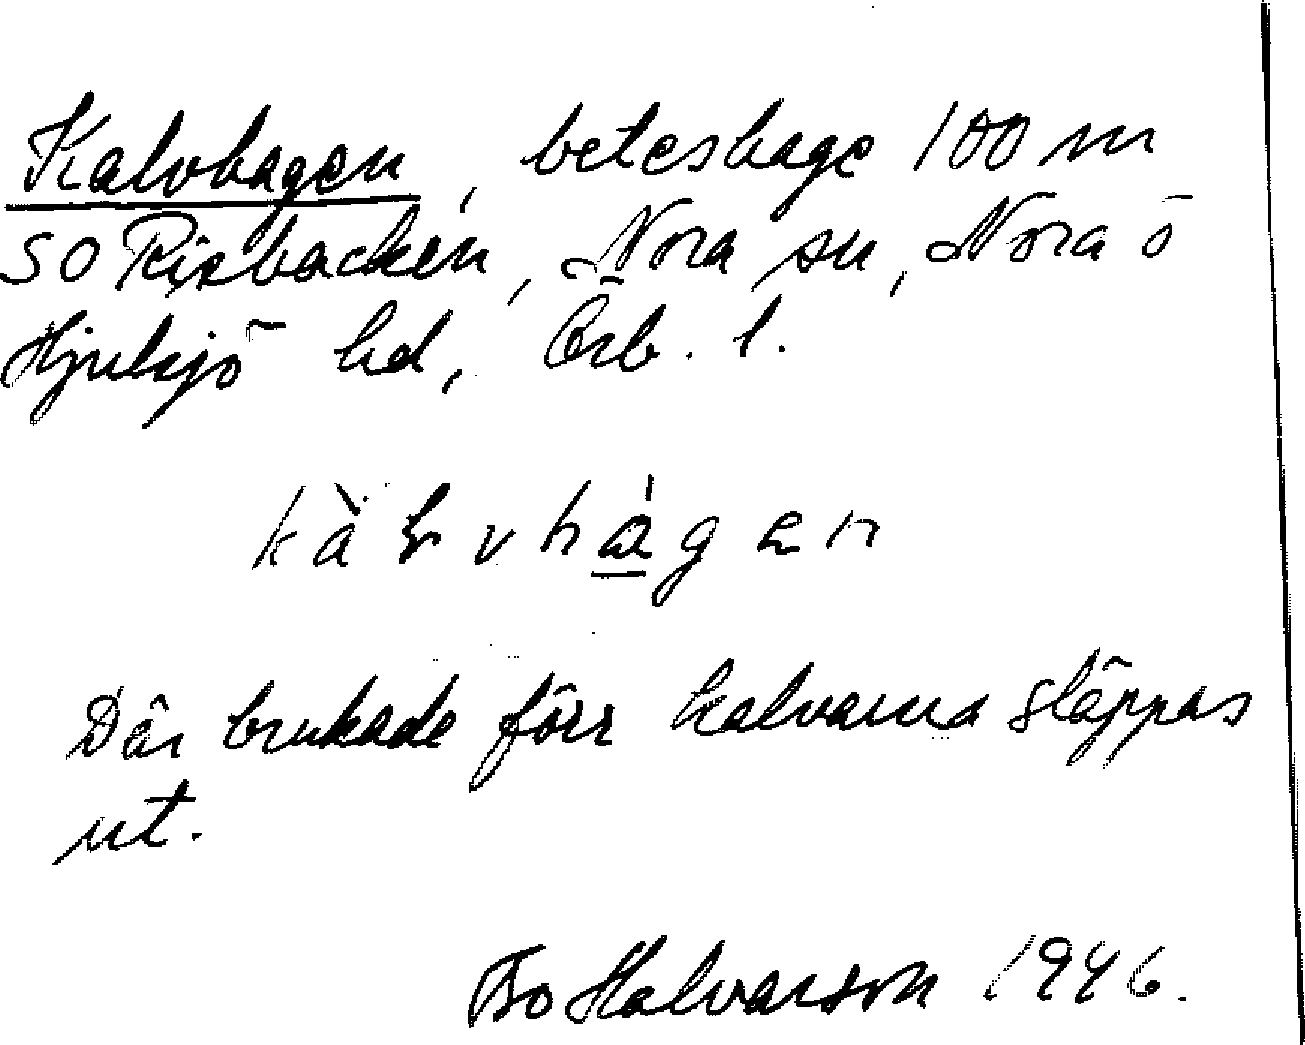 Kalvhagen, beteshage 100 m
SO Risbacken, Nora sn, Nora o
Hjulsjö hd, Örb. l.
kàlvhág en
Där brukade förr kalvarna släppas
ut.
Bo Halvarson 1946.